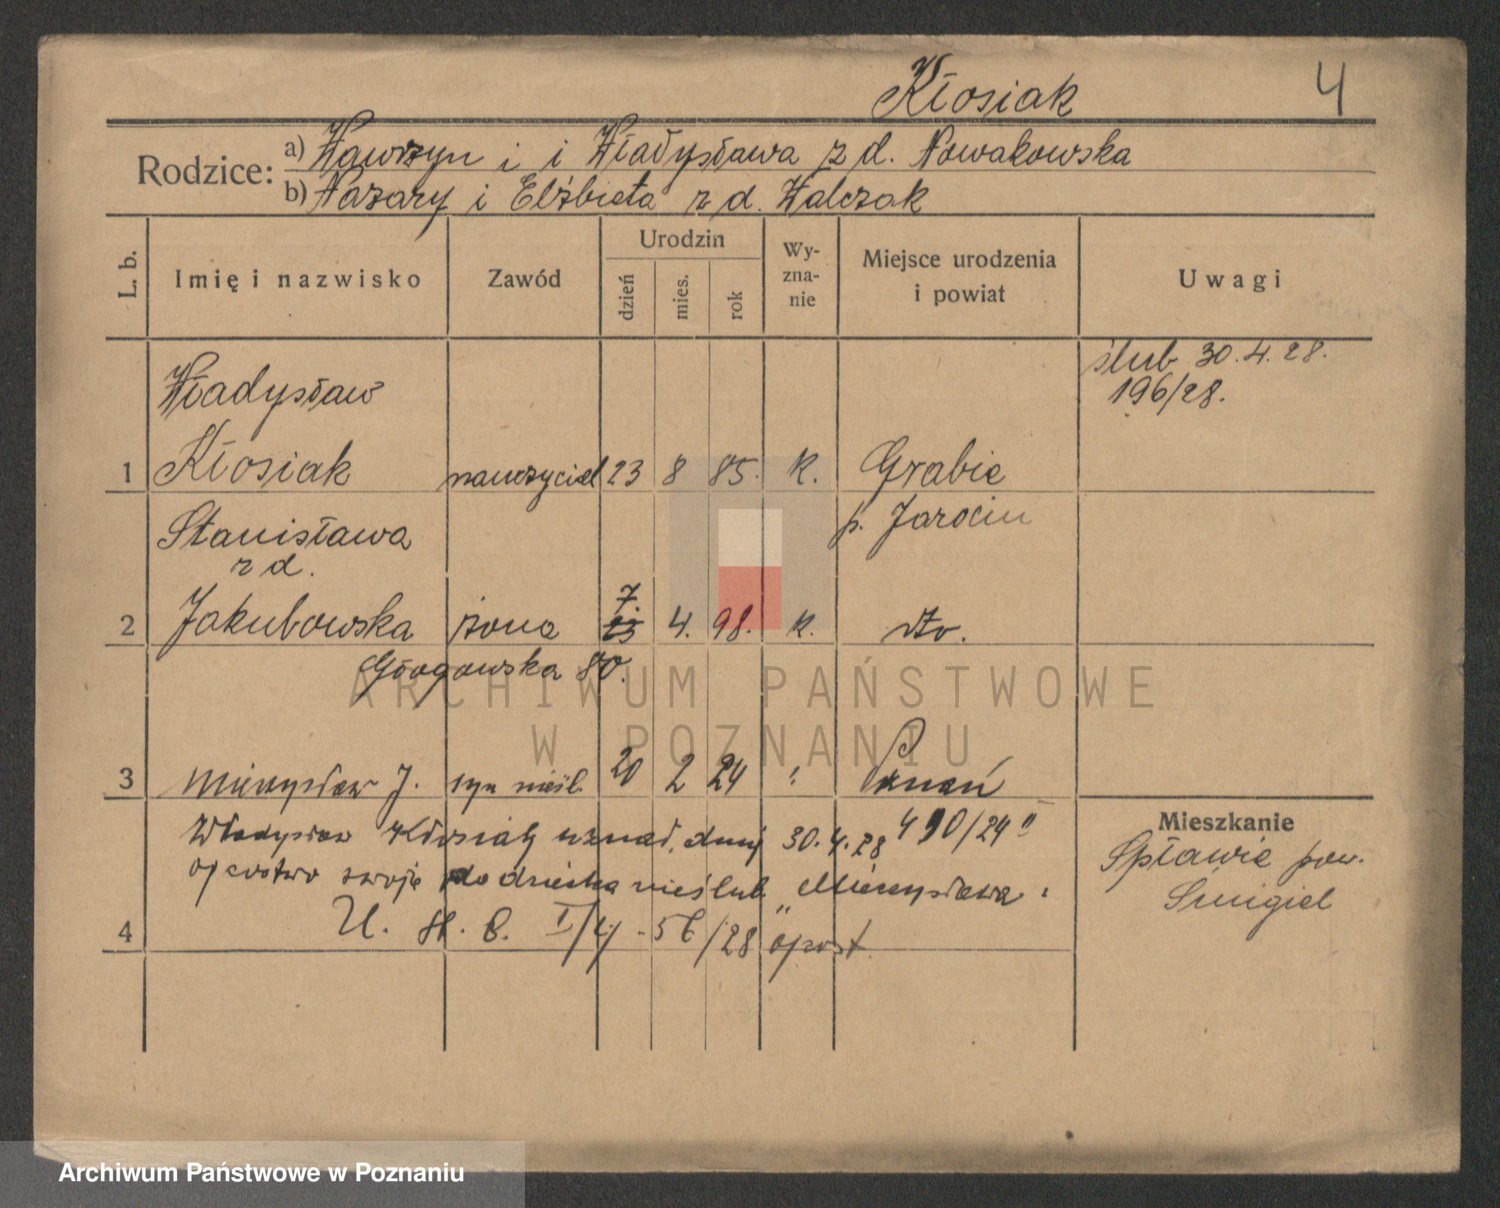 Kłosiak 4
Rodzice: a) Wawrzyn i i Władysława z d. Nowakowska
b) Nazary i Elżbieta z d. Walczak
L. b. Imię i nazwisko Zawód Urodzin dzień mies. rok Wy-zna-nie Miejsce urodzenia i powiat Uwagi
ślub 30.4.28.
196/28.
Władysław
1 Kłosiak nauczyciel 23 8 85. k. Grabie
p. Jarocin
Stanisława
z d.
7.
2 Jakubowska żona 23 4. 98. k. dto.
Głogowska 80.
3 Mieczysław J. syn nieśl. 20 2 24 " Poznań
490/24 II
Władysław Kłosiak uznał, dnia 30.4.28
ojcostwo swoje do dziecka nieślub. „Mieczysława"
4 U. St. C. I/ 56/28
Mieszkanie
Spławie pow.
Śmigiel
ARCHIWUM PAŃSTWOWE
W POZNANIU
Archiwum Państwowe w Poznaniu